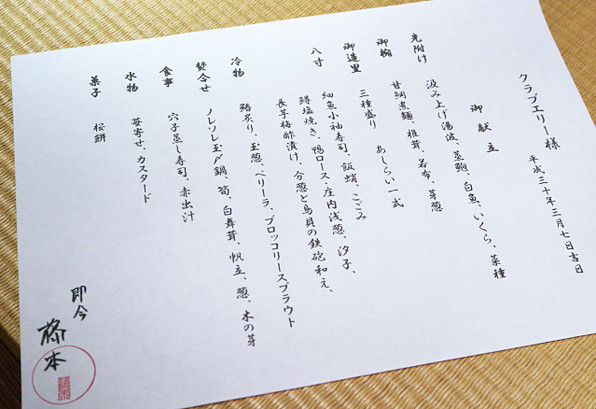 クラブエリー様　平成三十年三月七日吉日
御献立
先附け　汲み上げ湯波、蒸鮑、白魚、いくら、菜種
御椀　甘鯛煮麺、椎茸、若布、芽葱
御造里　三種盛り　あしらい一式
八寸　細魚小袖寿司、飯蛸、こごみ
鱒塩焼き、鴨ロース、庄内浅葱、汐子、
長芋梅酢漬け、分葱と鳥貝の鉄砲和え、
冷物　鮪炙り、玉葱、ベリーラ、ブロッコリースプラウト
焚合せ　ノレソレ玉〆鍋、筍、白舞茸、帆立、葱、木の芽
食事　穴子蒸し寿司、赤出汁
水物　苺寄せ、カスタード
菓子　桜餅
即今
本